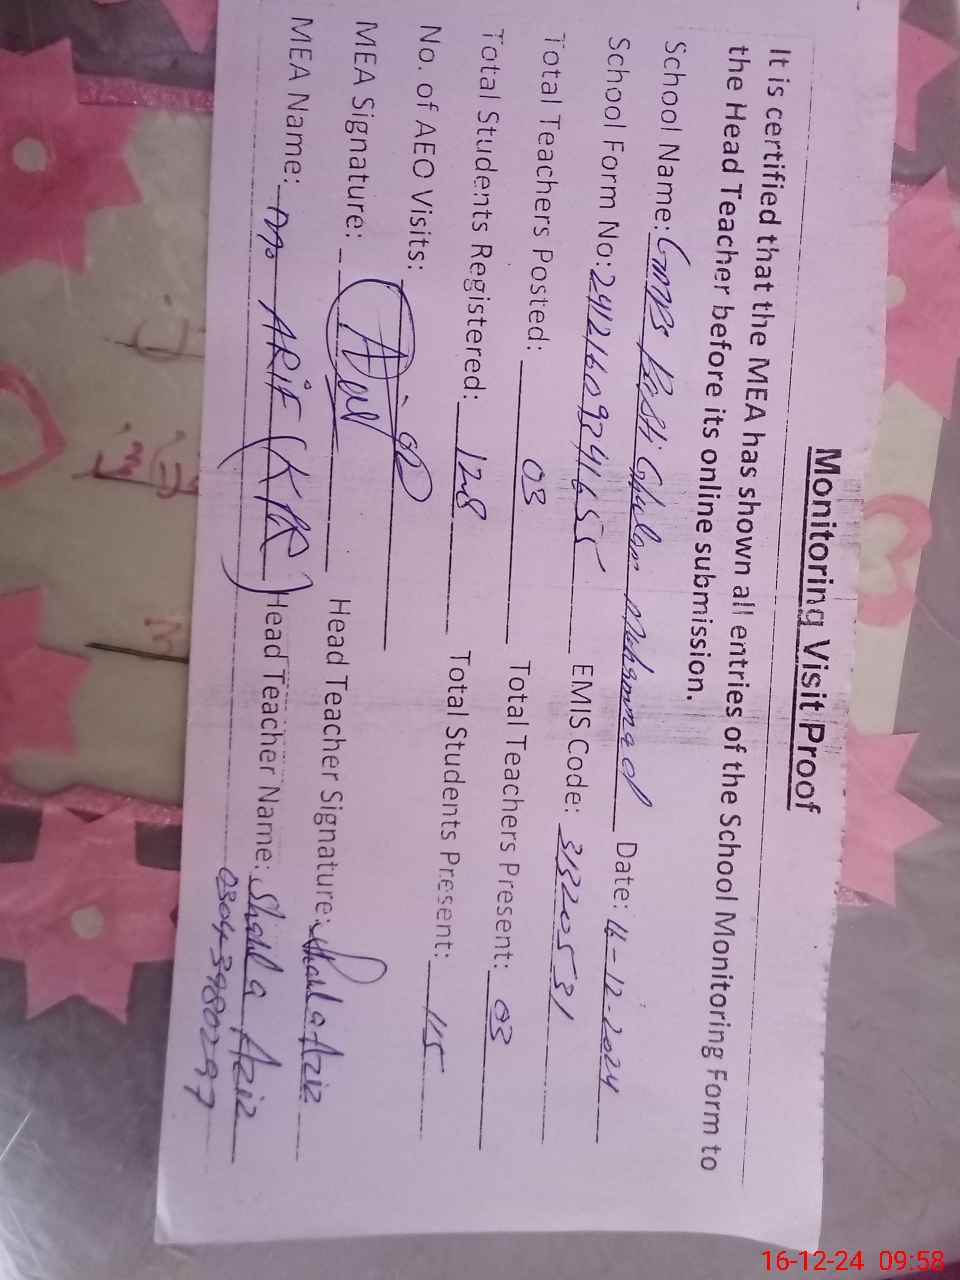 Monitoring Visit Proof
It is certified that the MEA has shown all entries of the School Monitoring Form to
the Head Teacher before its online submission.
School Name: GMPS Basti Ghulam Mohammad Date: 16-12-2024
School Form No: 24121609241655 EMIS Code: 31320531
Total Teachers Posted: 03 Total Teachers Present: 03
Total Students Registered: 128 Total Students Present: 115
No. of AEO Visits: 02
MEA Signature: Head Teacher Signature: Shahla Aziz
MEA Name: M. ARIF (KPR) Head Teacher Name: Shahla Aziz
03043980297
16-12-24 09:58